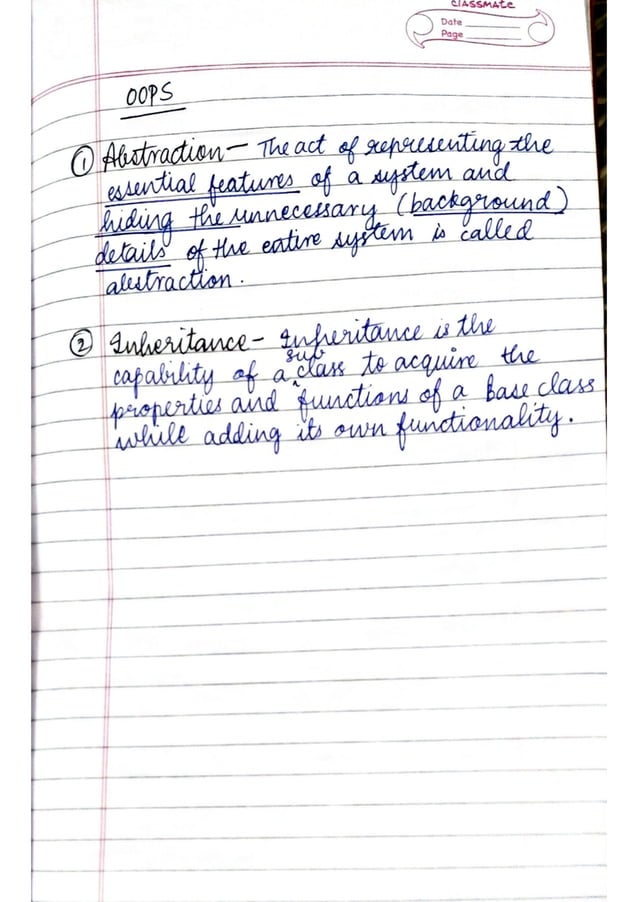 CLASSMATE
Date
Page
OOPS
① Abstraction — The act of representing the
essential features of a system and
hiding the unnecessary (background)
details of the entire system is called
abstraction.
② Inheritance - Inheritance is the
capability of a sub class to acquire the
properties and functions of a Base class
while adding its own functionality.